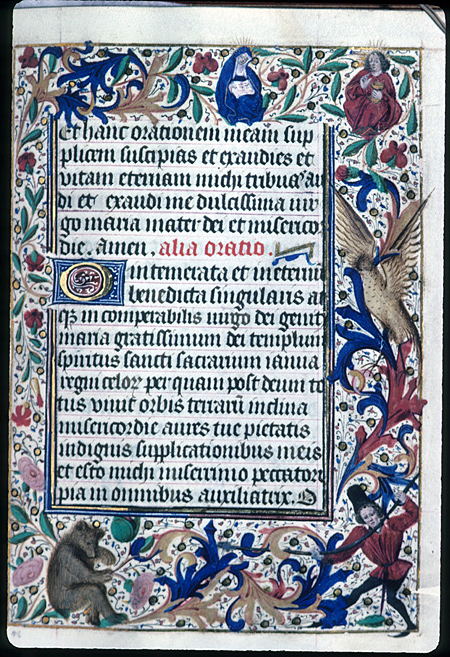 Et hanc orationem meam sup
plicem suscipias et exaudies et
vitam eternam michi tribuas au
di et exaudi me dulcissima vir
go maria mater dei et misericor
die. amen. alia oratio.
O intemerata et in eternum
benedicta singularis at
qz incomperabilis virgo dei genit
maria gratissimum dei templum
spiritus sancti sacrarium ianua
regni celorz per quam post deum to
tus vivit orbis terrarū inclina
misericordie aures tue pietatis
indignis supplicationibus meis
et esto michi miserrimo peccatori
pia in omnibus auxiliatrix. O